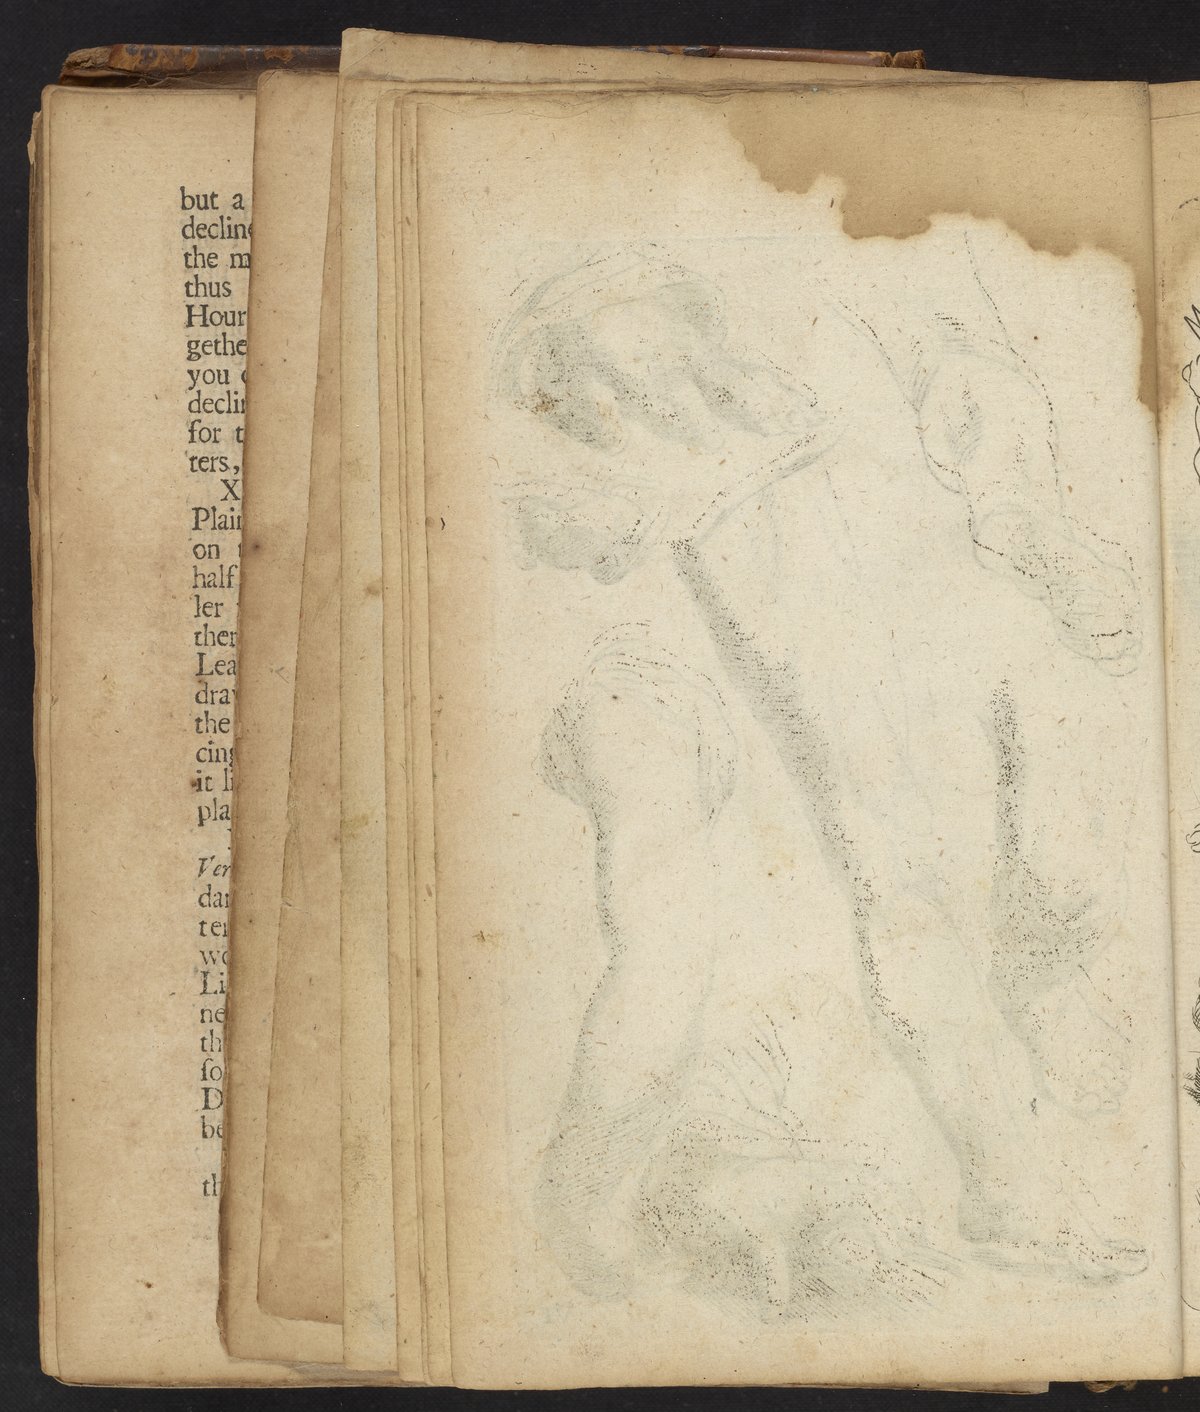 but a
decline
the m
thus
Hour
gethe
you
declin
for t
ters,
X
Plain
on
half
ler
ther
Lea
draw
the
cing
it li
pla
Ver
dar
ter
wo
Li
ne
th
ſo
D
be
th